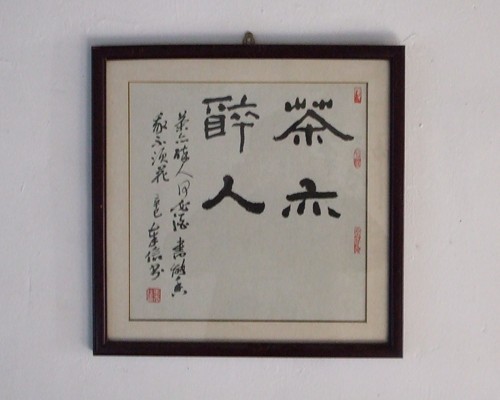 茶亦
醉人
茶亦醉人何必酒書能香
我不須花 辛巳